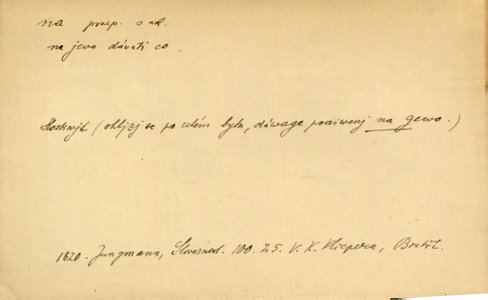 na praep. s ak.
na jevo dávati co.
Hostiwjt (ohljžj se po celém bytu, dáwage podiwenj na gewo.)
1820. Jungmann, Slovesnost. 100. 25. V. K. Klicpera, Bratři.